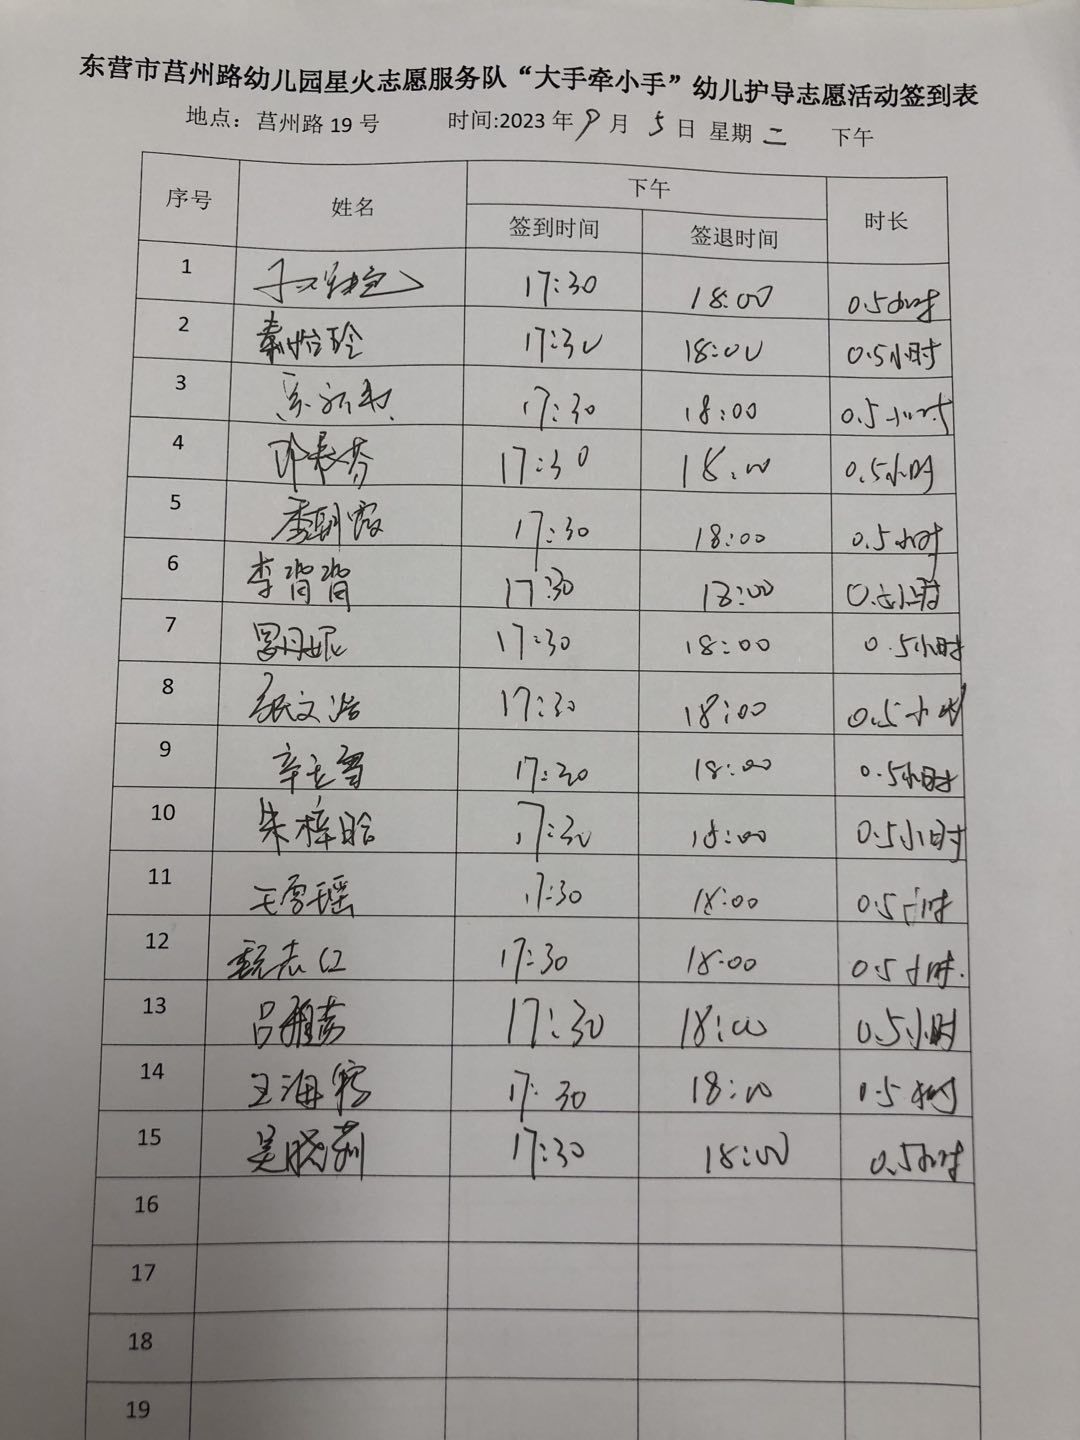 东营市莒州路幼儿园星火志愿服务队“大手牵小手”幼儿护导志愿活动签到表
地点：莒州路 19 号 时间:2023 年 9 月 5 日 星期 二 下午
序号 姓名 下午 时长
签到时间 签退时间
1 17:30 18:00 0.5小时
2 秦怡玲 17:30 18:00 0.5小时
3 17:30 18:00 0.5小时
4 邓表芬 17:30 18:00 0.5小时
5 季朝霞 17:30 18:00 0.5小时
6 李背背 17:30 18:00 0.5小时
7 罗丹妮 17:30 18:00 0.5小时
8 张文浩 17:30 18:00 0.5小时
9 辛玉雪 17:30 18:00 0.5小时
10 朱梓晗 17:30 18:00 0.5小时
11 王雪瑶 17:30 18:00 0.5小时
12 甄志红 17:30 18:00 0.5小时
13 吕雅喆 17:30 18:00 0.5小时
14 王海 17:30 18:00 0.5小时
15 吴晓莉 17:30 18:00 0.5小时
16
17
18
19